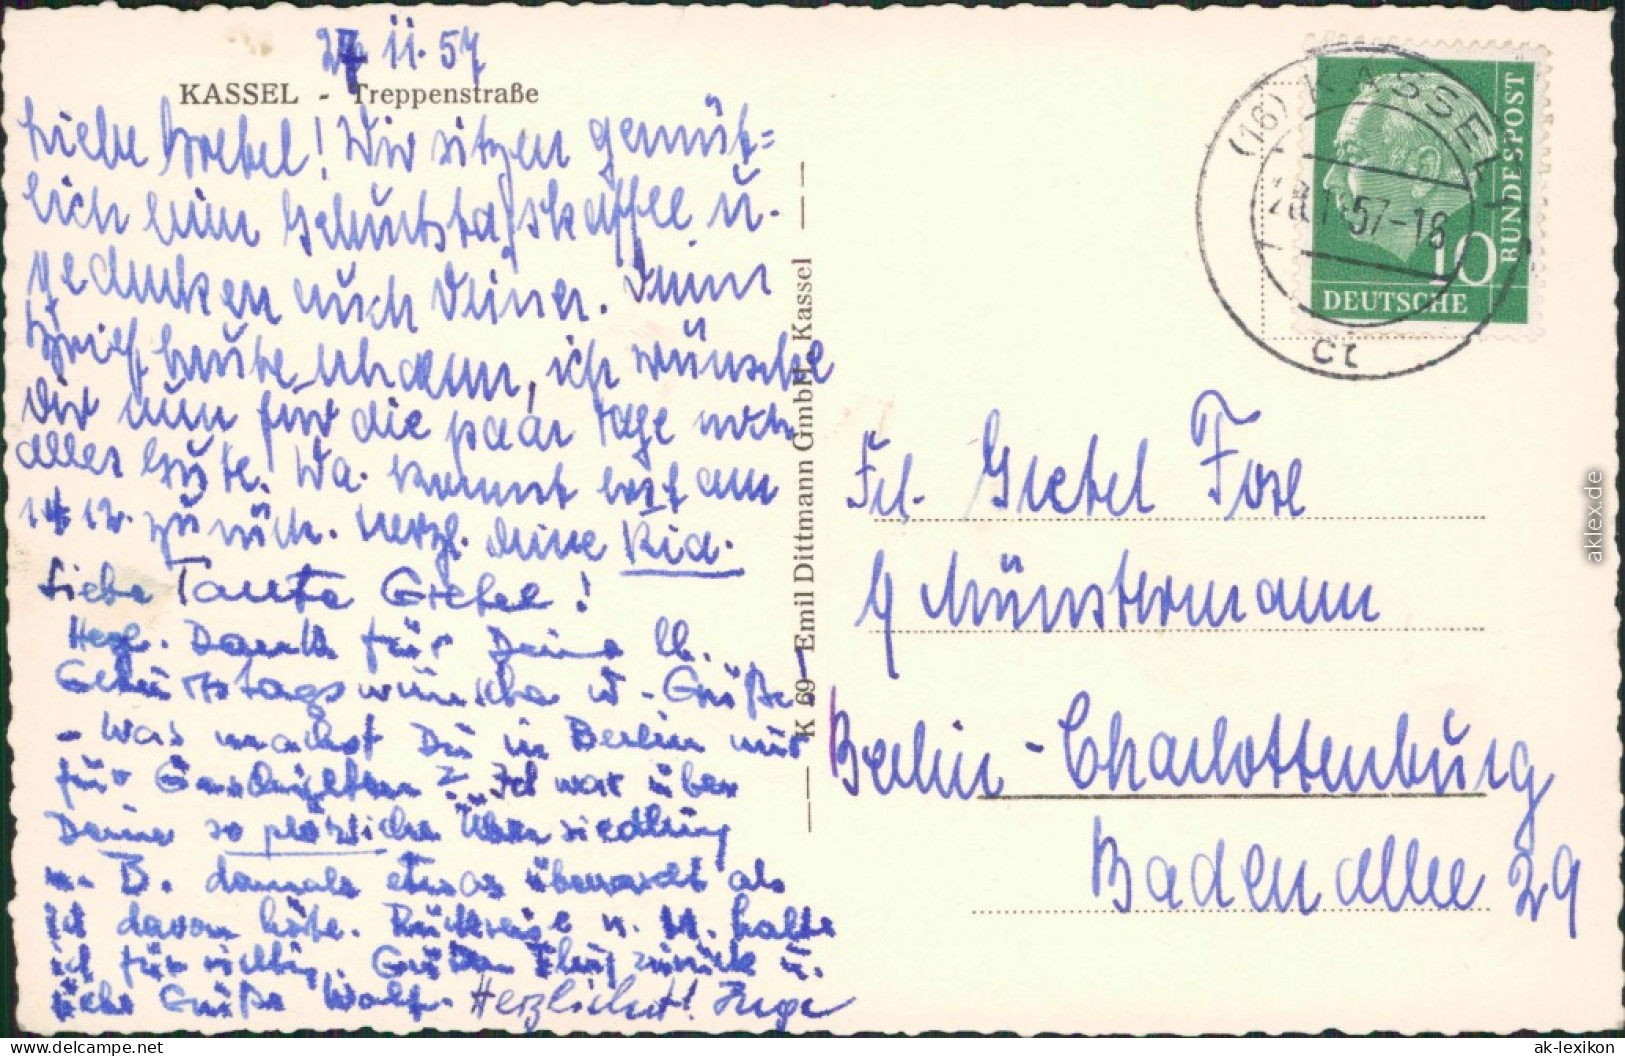 27 11. 57
KASSEL - Treppenstraße
Liebe Gretel! Wir sitzen gemüt=
lich beim Geburtstagskaffee u.
gedenken auch Deiner. Dein
Brief heute ankam, ich wünsche
Dir nun für die paar Tage noch
alles Gute. Wa. kommt erst am
14 12. zurück. Herzl. Deine Ria.
Liebe Tante Gretel!
Herzl. Dank für Deine lb.
Geburtstagswünsche u - Grüße
- Was machst Du in Berlin nur
für Geschichten? Ich war über
Deine so plötzliche Übersiedlung
n. B. damals etwas überrascht als
ich davon hörte. Rückreise n. M. halte
ich für richtig. Guten Flug zurück u.
liebe Grüße Wolf. Herzlichst! Inge
K 69 Emil Dittmann GmbH Kassel
(16) KASSEL
28.11.57-16
ct
10
DEUTSCHE
BUNDESPOST
Frl. Gretel
b/ Münstermann
Berlin-Charlottenburg
Badenallee 29
aklex.de
www.delcampe.net
ak-lexikon